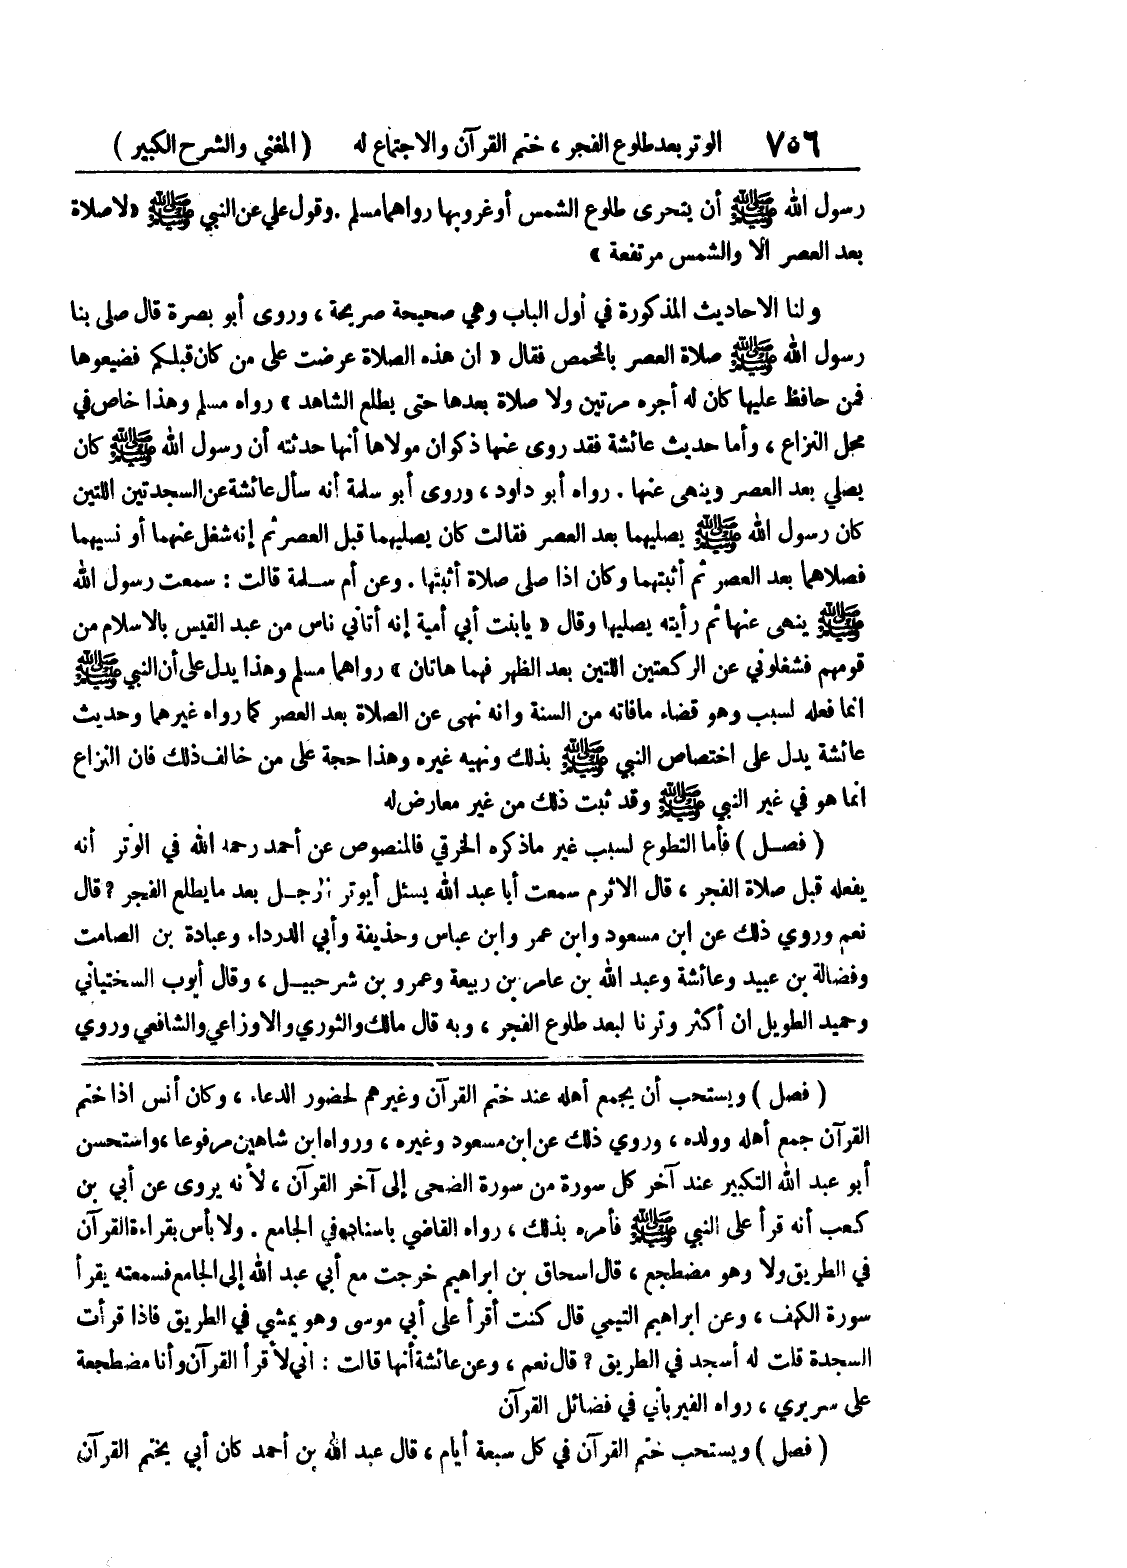 ٧٥٦ الوتر بعد طلوع الفجر ، ختم القرآن والاجتماع له ( المغني والشرح الكبير )
رسول الله ﷺ أن يتحرى طلوع الشمس أو غروبها رواهما مسلم . وقول علي عن النبي ﷺ « لا صلاة
بعد العصر الا والشمس مرتفعة »
ولنا الاحاديث المذكورة في أول الباب وهي صحيحة صريحة ، وروى أبو بصرة قال صلى بنا
رسول الله ﷺ صلاة العصر بالمخمص فقال « ان هذه الصلاة عرضت على من كان قبلكم فضيعوها
فمن حافظ عليها كان له أجره مرتين ولا صلاة بعدها حتى يطلع الشاهد » رواه مسلم وهذا خاص في
محل النزاع ، وأما حديث عائشة فقد روى عنها ذكوان مولاها أنها حدثته أن رسول الله ﷺ كان
يصلي بعد العصر وينهى عنها . رواه أبو داود ، وروى أبو سلمة أنه سأل عائشة عن السجدتين اللتين
كان رسول الله ﷺ يصليهما بعد العصر فقالت كان يصليهما قبل العصر ثم إنه شغل عنهما أو نسيهما
فصلاهما بعد العصر ثم أثبتهما وكان اذا صلى صلاة أثبتها . وعن أم سلمة قالت : سمعت رسول الله
ﷺ ينهى عنها ثم رأيته يصليها وقال « يابنت أبي أمية إنه أتاني ناس من عبد القيس بالاسلام من
قومهم فشغلوني عن الركعتين اللتين بعد الظهر فهما هاتان » رواهما مسلم وهذا يدل على أن النبي ﷺ
انما فعله لسبب وهو قضاء مافاته من السنة وانه نهى عن الصلاة بعد العصر كما رواه غيرهما وحديث
عائشة يدل على اختصاص النبي ﷺ بذلك ونهيه غيره وهذا حجة على من خالف ذلك فان النزاع
انما هو في غير النبي ﷺ وقد ثبت ذلك من غير معارض له
( فصل ) فأما التطوع لسبب غير ماذكره الخرقي فالمنصوص عن أحمد رحمه الله في الوتر أنه
يفعله قبل صلاة الفجر ، قال الاثرم سمعت أبا عبد الله يسئل أيوتر الرجل بعد مايطلع الفجر ؟ قال
نعم وروي ذلك عن ابن مسعود وابن عمر وابن عباس وحذيفة وأبي الدرداء وعبادة بن الصامت
وفضالة بن عبيد وعائشة وعبد الله بن عامر بن ربيعة وعمرو بن شرحبيل ، وقال أيوب السختياني
وحميد الطويل ان أكثر وترنا لبعد طلوع الفجر ، وبه قال مالك والثوري والاوزاعي والشافعي وروي
( فصل ) ويستحب أن يجمع أهله عند ختم القرآن وغيرهم لحضور الدعاء ، وكان أنس اذا ختم
القرآن جمع أهله وولده ، وروي ذلك عن ابن مسعود وغيره ، ورواه ابن شاهين مرفوعا ، واستحسن
أبو عبد الله التكبير عند آخر كل سورة من سورة الضحى إلى آخر القرآن ، لأنه يروى عن أبي بن
كعب أنه قرأ على النبي ﷺ فأمره بذلك ، رواه القاضي باسناده في الجامع . ولا بأس بقراءة القرآن
في الطريق ولا وهو مضطجع ، قال اسحاق بن ابراهيم خرجت مع أبي عبد الله إلى الجامع فسمعته يقرأ
سورة الكهف ، وعن ابراهيم التيمي قال كنت أقرأ على أبي موسى وهو يمشي في الطريق فاذا قرأت
السجدة قلت له أسجد في الطريق ؟ قال نعم ، وعن عائشة أنها قالت : اني لأقرأ القرآن وأنا مضطجعة
على سريري ، رواه الفيريأني في فضائل القرآن
( فصل ) ويستحب ختم القرآن في كل سبعة أيام ، قال عبد الله بن أحمد كان أبي يختم القرآن